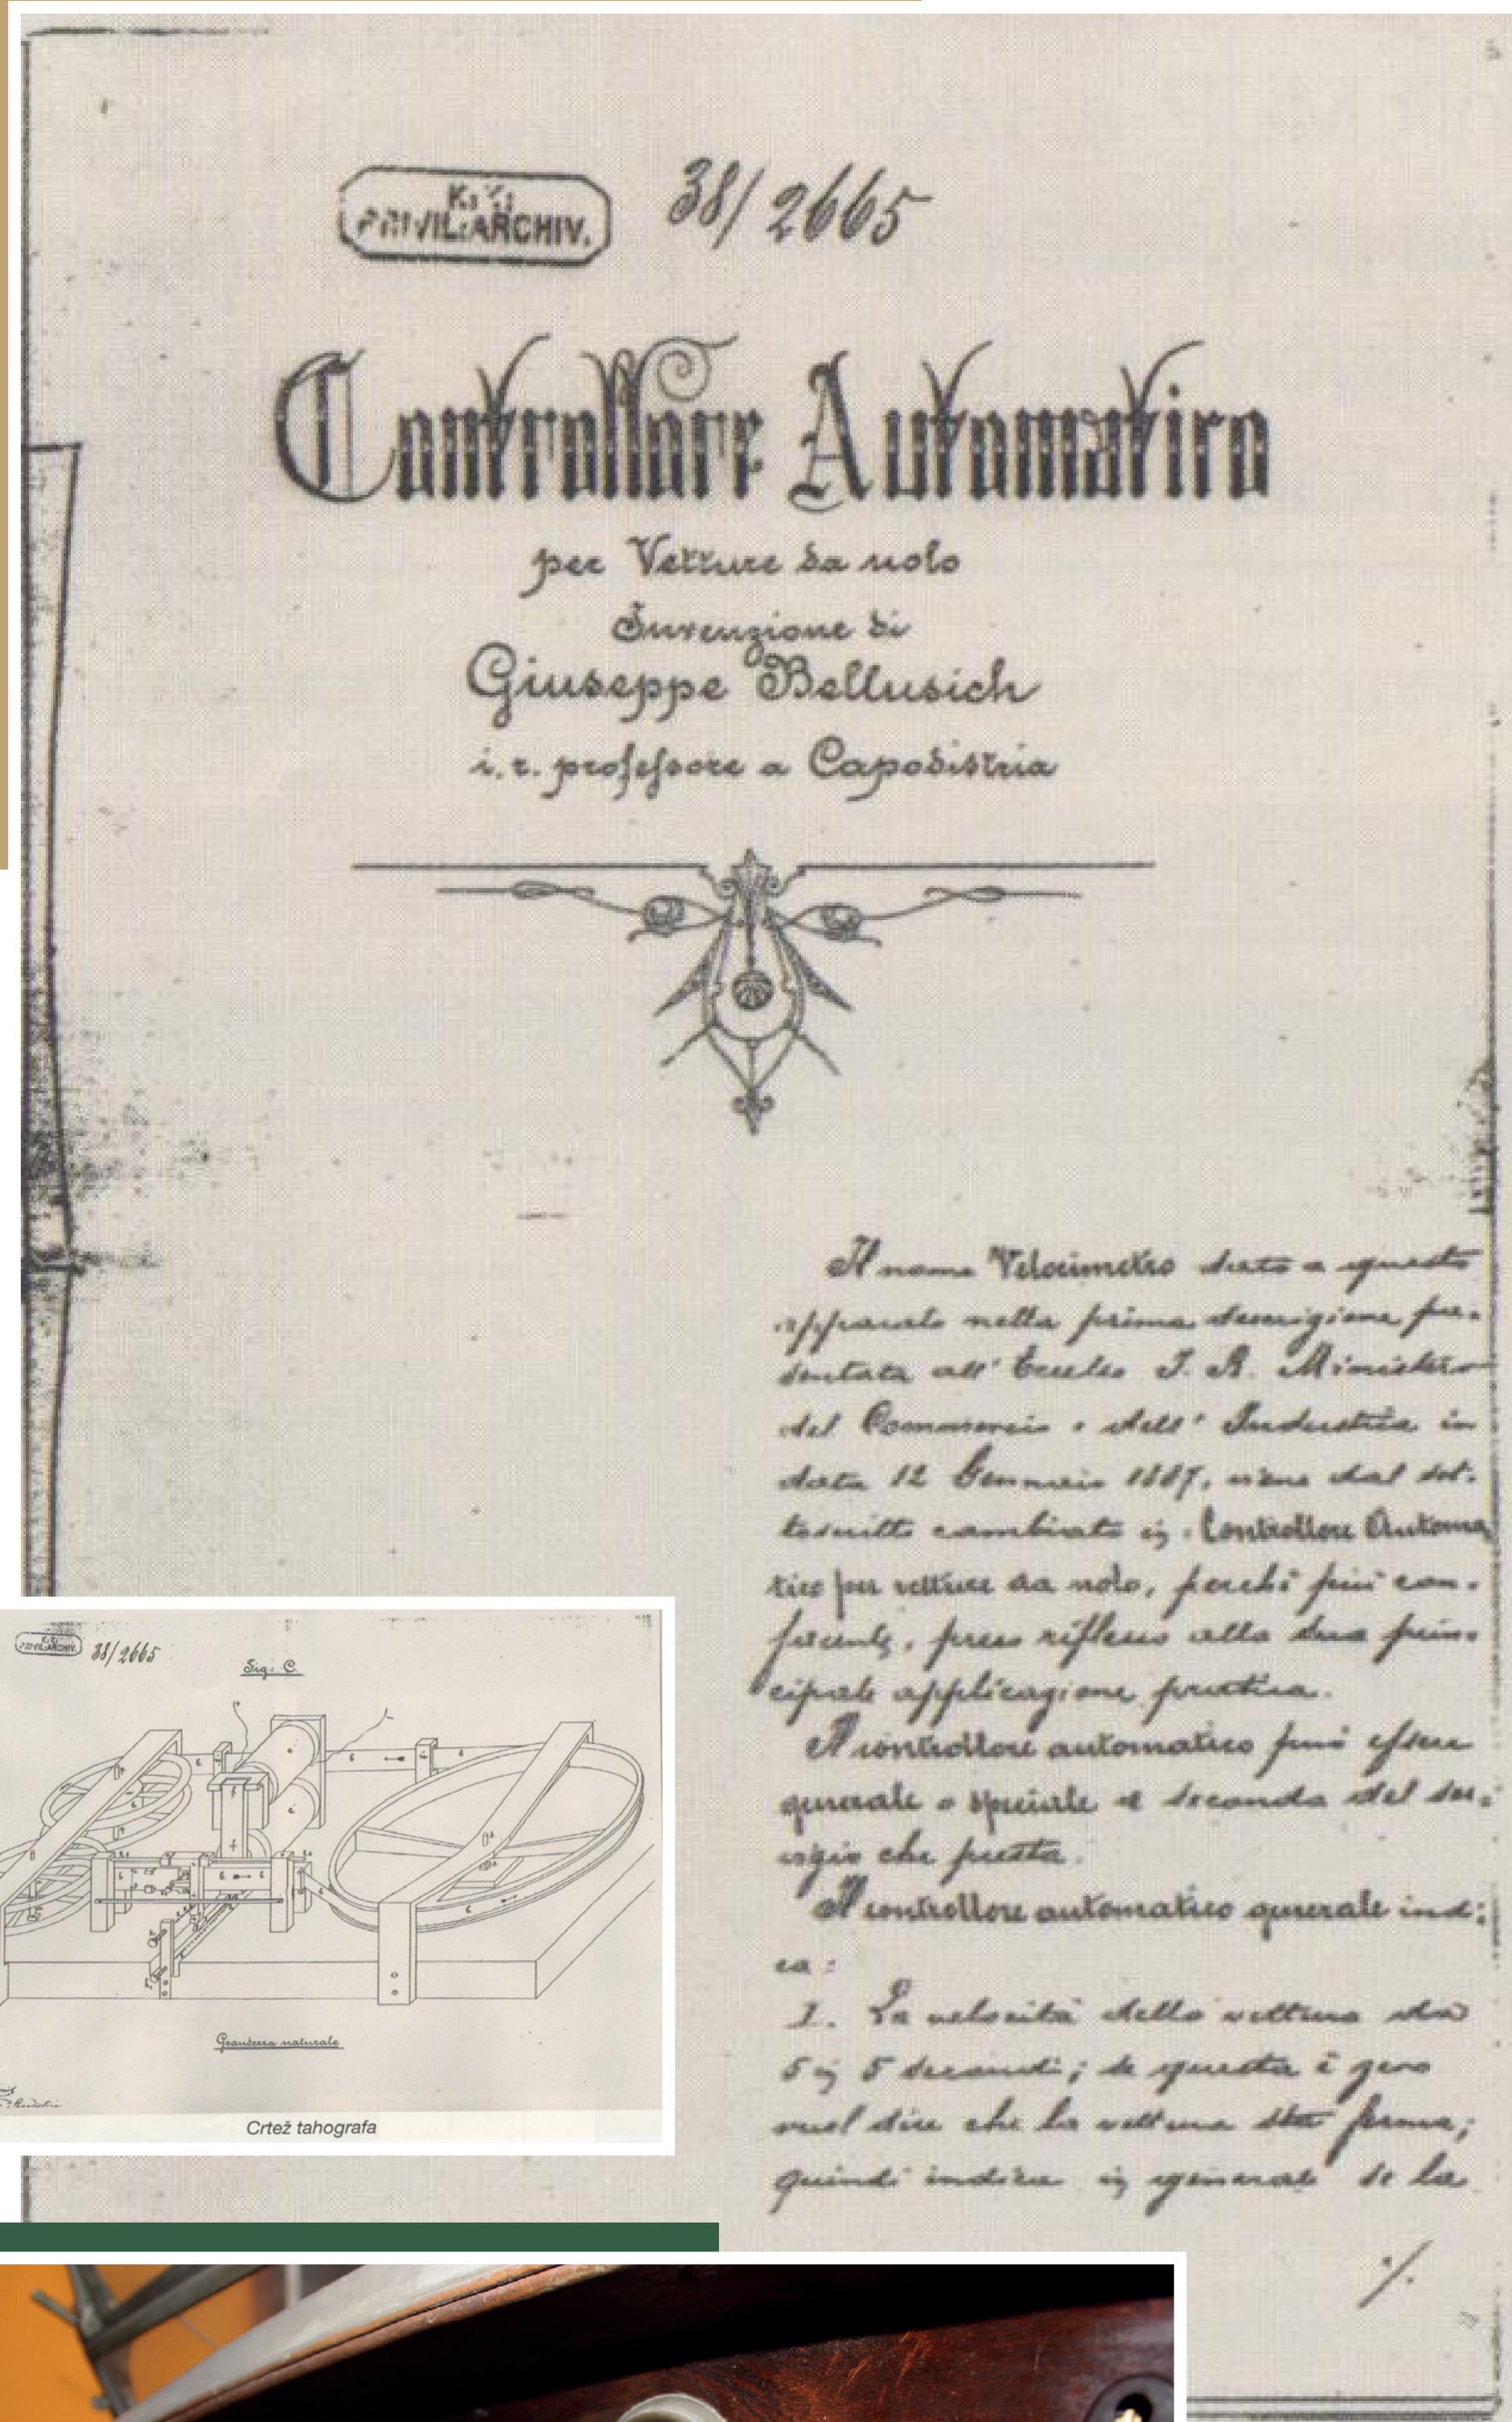 K. K.
PRIVIL: ARCHIV.
38/2665
Controllore Automatico
per Vetture da nolo
Invenzione di
Giuseppe Bellusich
i. r. professore a Capodistria
Il nome Velocimetro dato a questo
apparato nella prima descrizione pre-
sentata all' Eccelso I. R. Ministero
del Commercio e dell' Industria in
data 12 Gennaio 1887, viene dal sot-
toscritto cambiato in: Controllore Automa
tico per vetture da nolo, perchè più con-
facente, preso riflesso alla sua prin-
cipale applicazione pratica.
Il controllore automatico può essere
generale o speciale a seconda del ser-
vizio che presta.
Il controllore automatico generale indi
ca:
I. La velocità della vettura da
5 in 5 secondi; se questa è zero
vuol dire che la vettura sta ferma;
quindi indica in generale se la
%
K. K.
PRIVIL: ARCHIV.
38/2665
Fig: C.
Grandezza naturale
Crtež tahografa